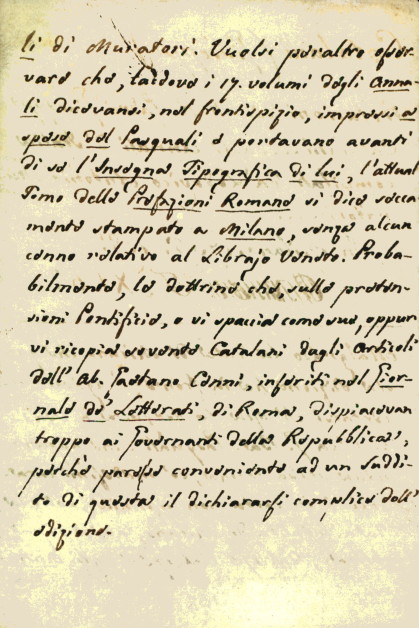 li di Muratori. Vuolsi peraltro osser-
vare che, laddove i 17. volumi degli Anna-
li dicevansi, nel frontispizio, impressi a
spese del Pasquali e portavano avanti
di se l'Insegna Tipografica di lui, l'attual
Tomo delle Prefazioni Romane si dice secca-
mente stampato a Milano, senza alcun
cenno relativo al Librajo Veneto. Proba-
bilmente, le dottrine che, sulle preten-
sioni Pontificie, o vi spaccia come sue, oppur
vi ricopia sovente Catalani dagli Articoli
dell' Ab. Gaetano Cenni, inseriti nel Gior-
nale de' Letterati, di Roma, dispiacevan
troppo ai Governanti della Repubblica,
perchè paresse conveniente ad un Suddi-
to di questa il dichiararsi complice dell'
edizione.